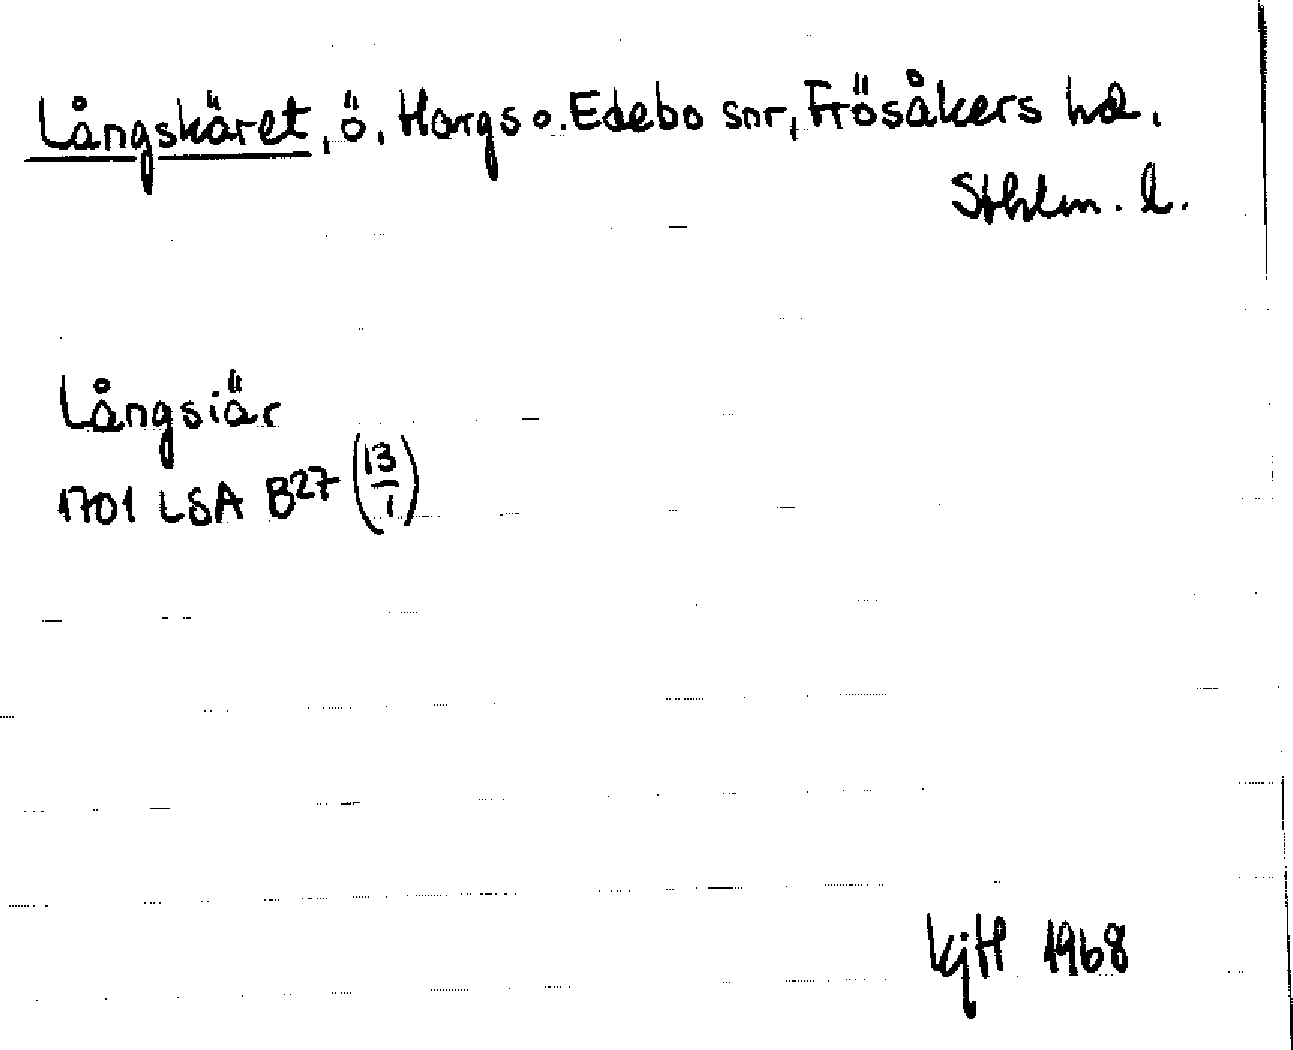 Långskäret, ö, Hargs o. Edebo snr, Frösåkers hd.
Sthlm. l.
Långsiär
1701 LSA B27 (13/1)
KjH 1968